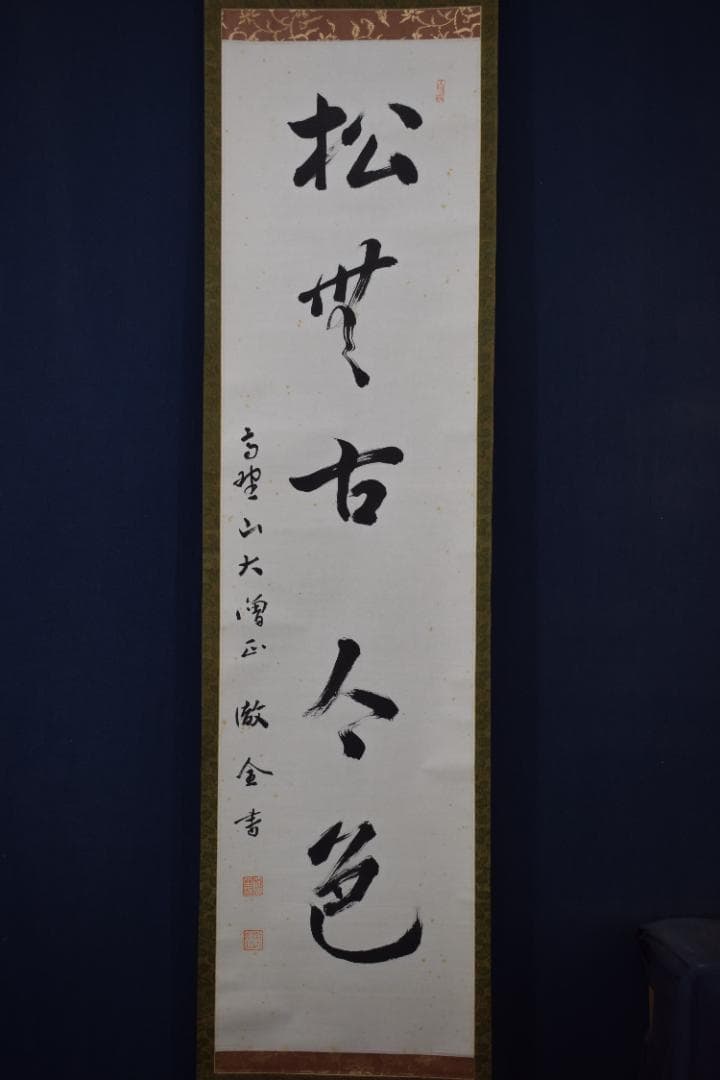 松無古今色
高野山大僧正 徹全書